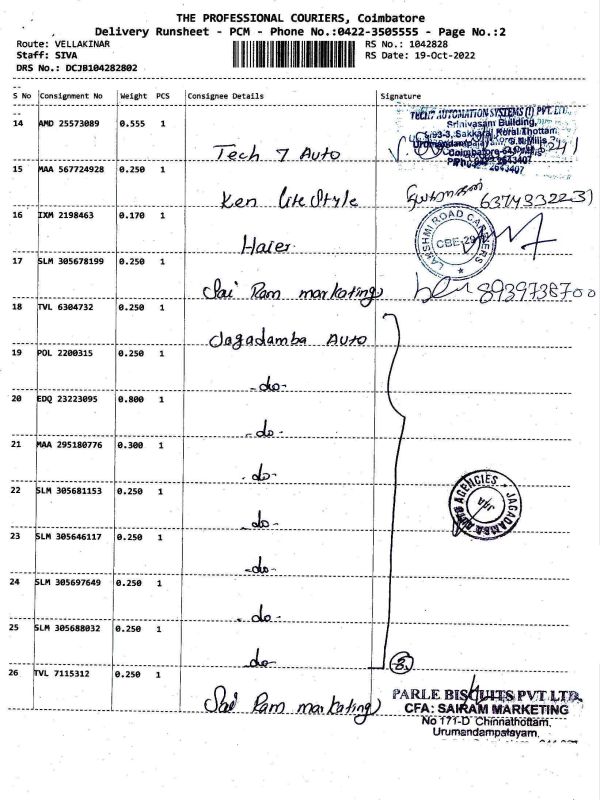 THE PROFESSIONAL COURIERS, Coimbatore
Delivery Runsheet - PCM - Phone No.:0422-3505555 - Page No.:2
Route: VELLAKINAR RS No.: 1042828
Staff: SIVA RS Date: 19-Oct-2022
DRS No.: DCJB104282802
S No Consignment No Weight PCS Consignee Details Signature
14 AMD 25573089 0.555 1
TECH7 AUTOMATION SYSTEMS (I) PVT. LTD.,
Srinivasam Building,
5/93-3, Sakkarai Korai Thottam
Urumandampalayam, G.N.Mills
Coimbatore
Tech 7 Auto
15 MAA 567724928 0.250 1
Ken Lite Style 6374332231
16 IXM 2198463 0.170 1
Haier
LAKSHMI ROAD CARRIERS
CBE-29
17 SLM 305678199 0.250 1
Sai Ram marketing 8939738700
18 TVL 6304732 0.250 1
Jagadamba Auto
19 POL 2200315 0.250 1
-do-
20 EDQ 23223095 0.800 1
-do-
21 MAA 295180776 0.300 1
-do-
22 SLM 305681153 0.250 1
-do-
JAGADAMBA AUTO AGENCIES
JAA
23 SLM 305646117 0.250 1
-do-
24 SLM 305697649 0.250 1
-do-
25 SLM 305688032 0.250 1
-do- 8
26 TVL 7115312 0.250 1
Sai Ram marketing
PARLE BISCUITS PVT LTD.
CFA: SAIRAM MARKETING
No 171-D Chinnathottam,
Urumandampalayam,